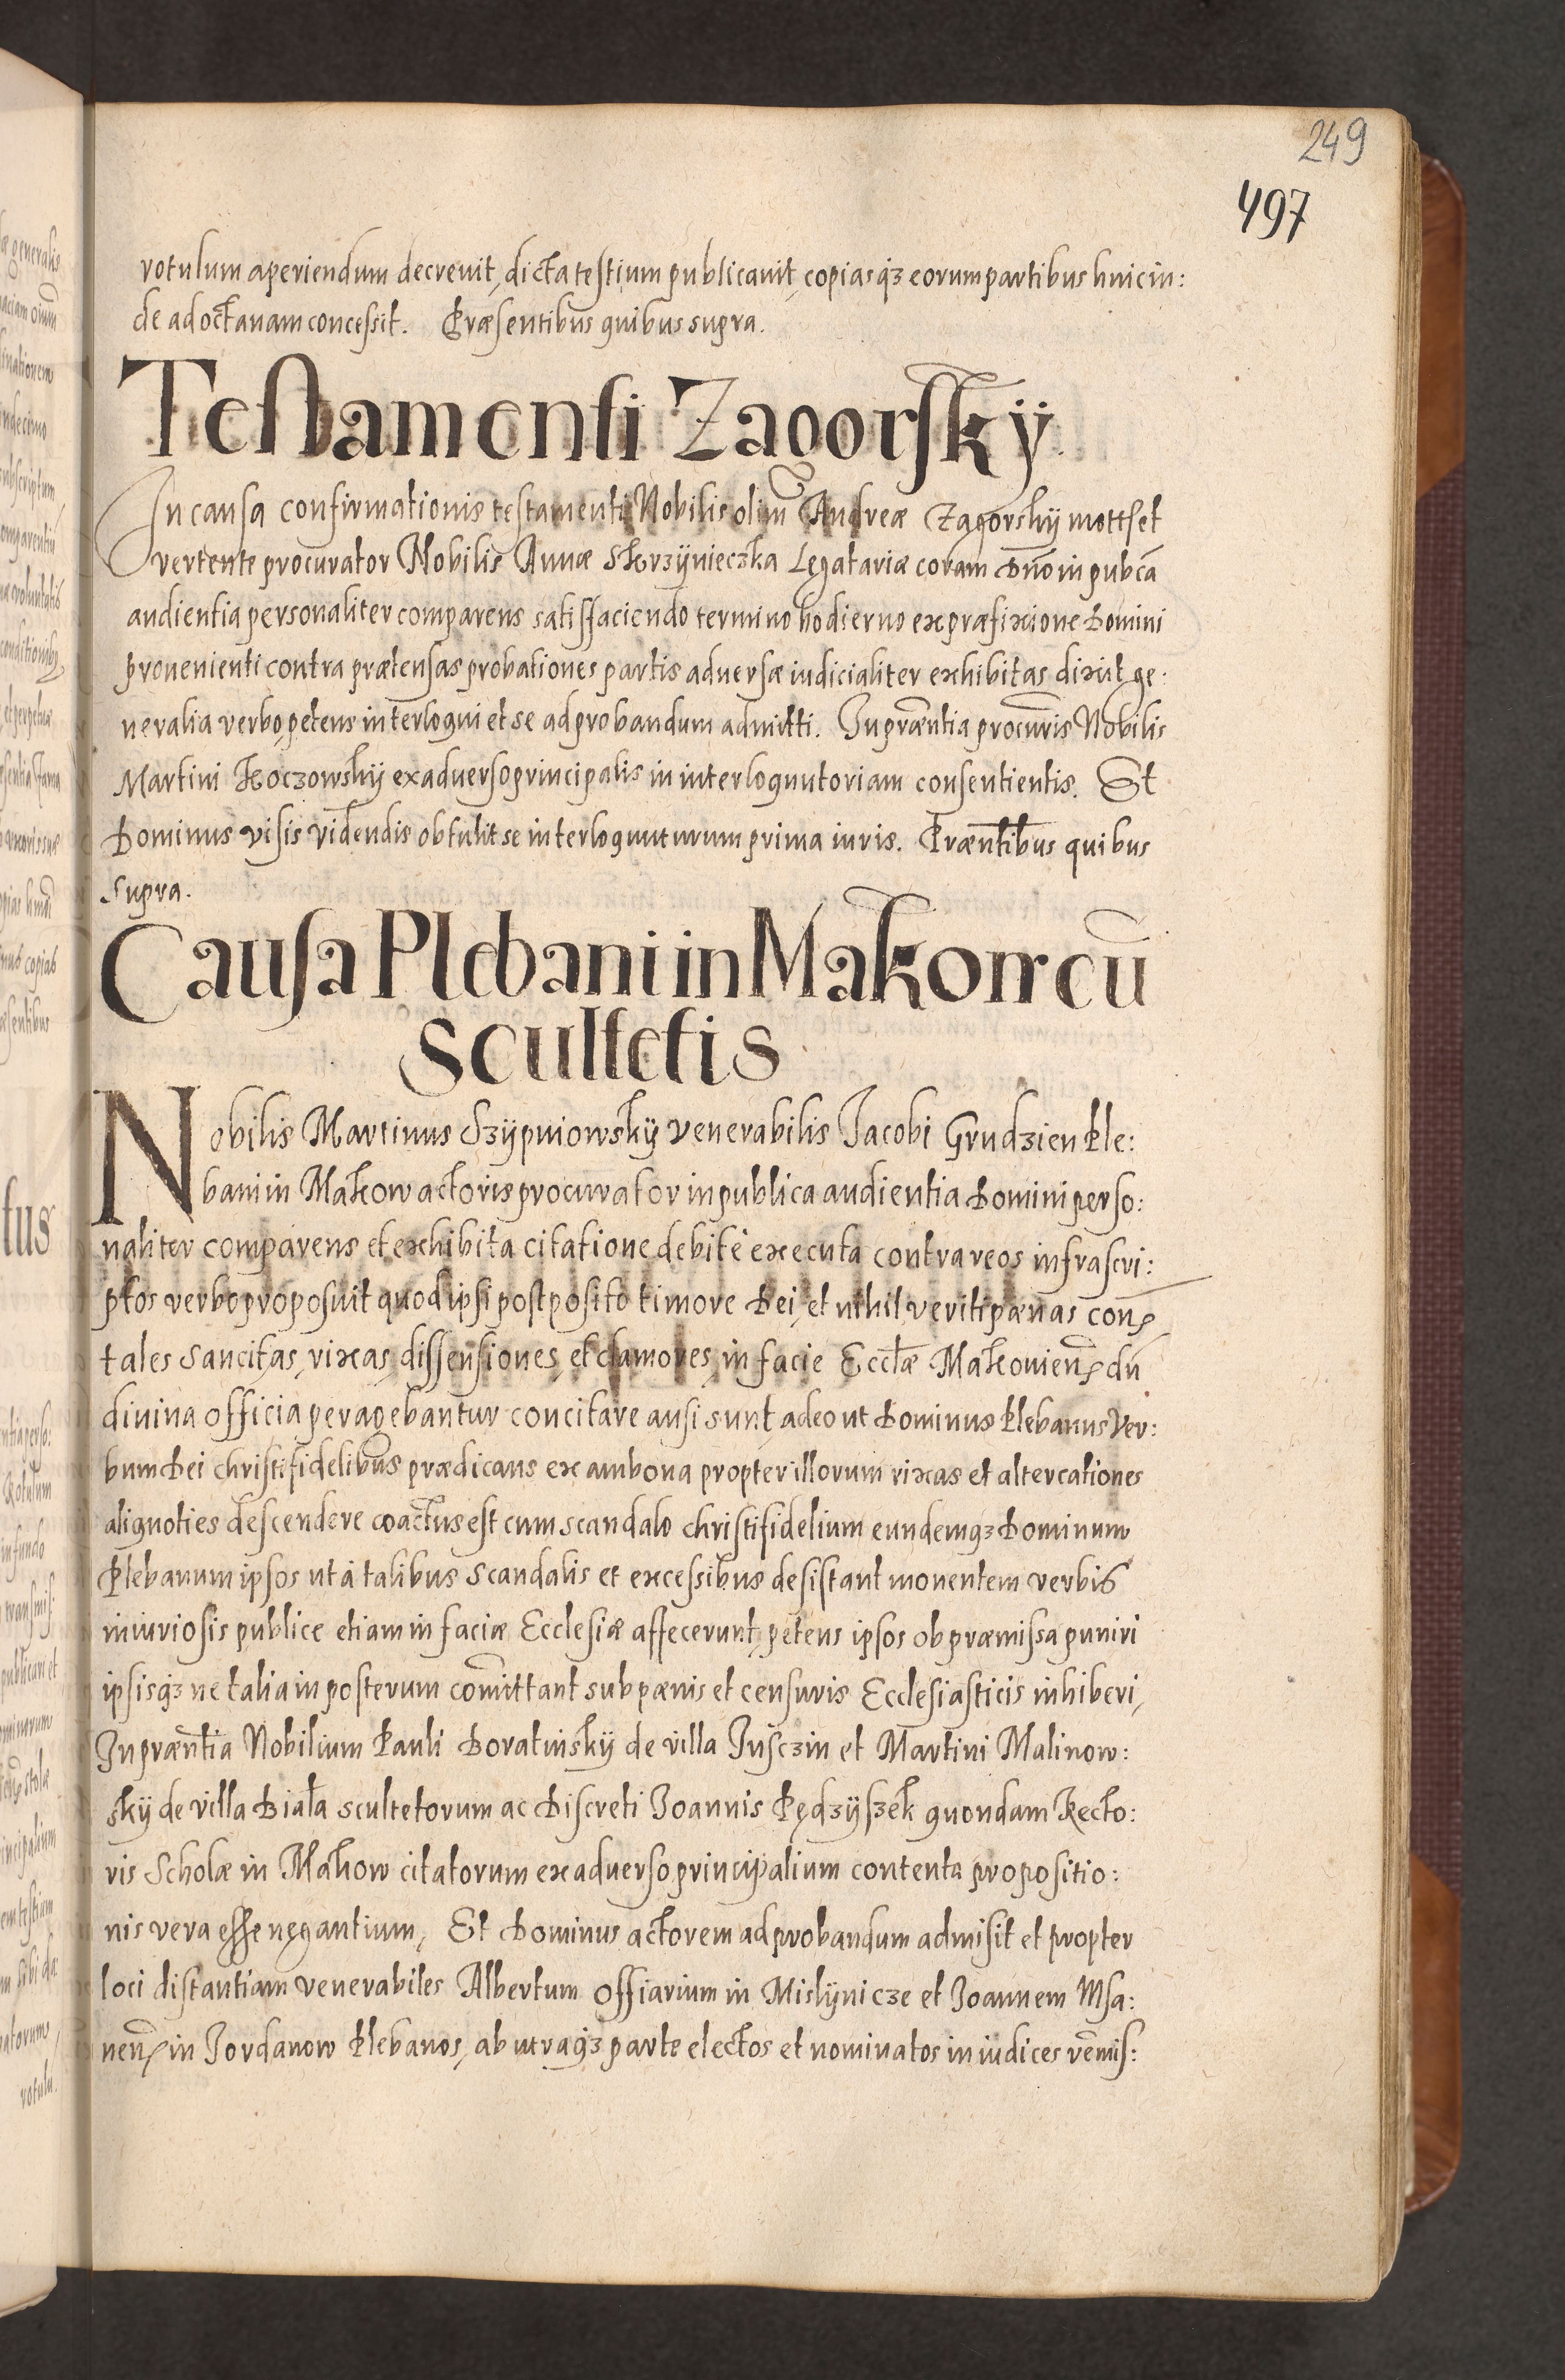 249
497
rotulum aperiendum decrevit, dicta testium publicavit, copiasq3 eorum partibus hincin:
de ad octavam concessit. Præsentibus quibus supra.
Testamenti Zagorskÿ
In causa confirmationis testamenti Nobilis olim Andreæ Zagorskÿ
vertente procurator Nobilis Annæ Skrzÿnieczka Legatariæ coram Dno in pubca
audientia personaliter comparens satisfaciendo termino hodierno ex præfixione Domini
provenienti contra prætensas probationes partis adversæ iudicialiter exhibitas dixit ge:
neralia verbo, petens interloqui et se ad probandum admitti. In præntia procuris Nobilis
Martini Koczowskÿ ex adverso principalis in interloquutoriam consentientis. Et
Dominus visis videndis obtulit se interloquuturum prima iuris. Præntibus quibus
supra.
Causa Plebani in Makow cũ
scultetis
Nobilis Martinus Szÿpniowskÿ venerabilis Jacobi Grudzien Ple:
bani in Makow actoris procurator in publica audientia Domini perso:
naliter comparens et exhibita citatione debitè executa contra reos infrascri:
ptos verbo proposuit quod ipsi postposito timore Dei, et nihil veriti pænas con
tales sancitas, rixas, dissensiones, et clamores, in facie Eccłæ Makovien dũ
divina officia peragebantur concitare ausi sunt, adeo ut Dominus Plebanus Ver:
bum Dei christifidelibus prædicans ex ambona propter illorum rixas et altercationes
aliquoties descendere coactus est cum scandalo christifidelium eundemq3 Dominum
Plebanum ipsos ut à talibus scandalis et excessibus desistant monentem verbis
iniuriosis publice etiam in faciæ Ecclesiæ affecerunt, petens ipsos ob præmissa puniri
ipsisq3 ne talia in posterum comittant sub pænis et censuris Ecclesiasticis inhiberi,
In præntia Nobilium Pauli Boratinskÿ de villa Jusczin et Martini Malinow:
skÿ de villa Biała scultetorum ac Discreti Joannis Pędzÿszek quondam Recto:
ris Scholæ in Makow citatorum ex adverso principalium contenta propositio:
nis vera esse negantium, Et Dominus actorem ad probandum admisit et propter
loci distantiam venerabiles Albertum Offiarium in Mislÿnicze et Joannem Msa:
nen in Jordanow Plebanos, ab utraq3 parte electos et nominatos in iudices remis: